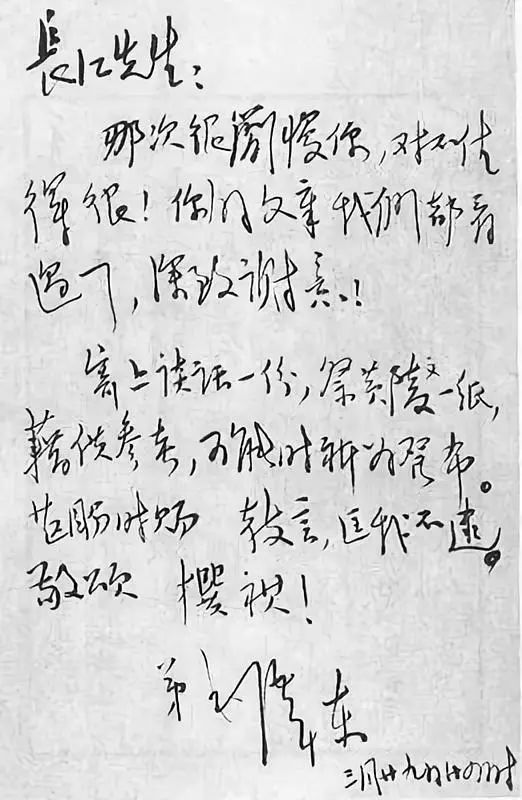 長江先生：
那次很簡慢你，对不住
得很！你的文章我們都看
过了，深致謝意！
寄上谈话一份，祭黄陵文一纸，
藉供參考，可能时祈为發布。
甚盼时赐 教言，匡我不逮。
敬颂 撰祺！
弟 毛泽东
三月廿九日廿四时